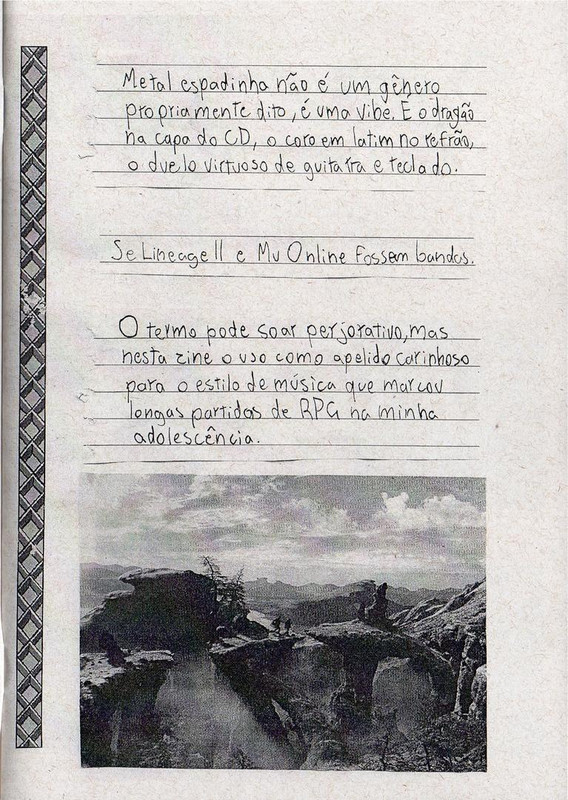 Metal espadinha não é um gênero
propriamente dito, é uma vibe. É o dragão
na capa do CD, o coro em latim no refrão,
o duelo virtuoso de guitarra e teclado.
Se Lineage II e Mu Online fossem bandas.
O termo pode soar perjorativo, mas
nesta zine o uso como apelido carinhoso
para o estilo de música que marcou
longas partidas de RPG na minha
adolescência.